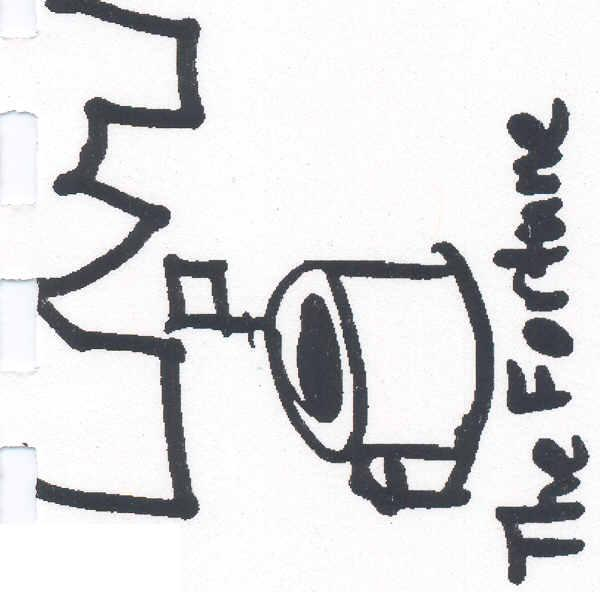 The Fortune